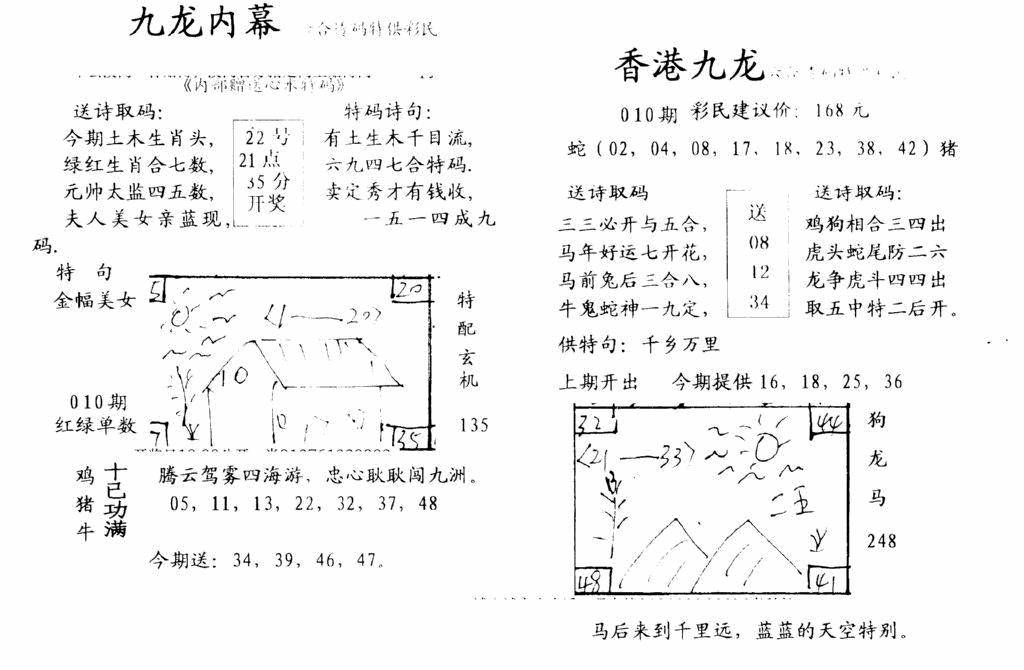 九龙内幕
《内部赠送心水特码》
送诗取码:
今期土木生肖头,
绿红生肖合七数,
元帅太监四五数,
夫人美女亲蓝现,
码.
22号
21点
35分
开奖
特码诗句:
有土生木千目流,
六九四七合特码.
卖定秀才有钱收,
一五一四成九
特 句
金幅美女
010期
红绿单数
5
20
〈1——20〉
10
35
特
配
玄
机
135
鸡
猪
牛
十已功满
腾云驾雾四海游, 忠心耿耿闯九洲。
05, 11, 13, 22, 32, 37, 48
今期送: 34, 39, 46, 47。
香港九龙
010期 彩民建议价: 168元
蛇 (02, 04, 08, 17, 18, 23, 38, 42) 猪
送诗取码
三三必开与五合,
马年好运七开花,
马前兔后三合八,
牛鬼蛇神一九定,
送
08
12
34
送诗取码:
鸡狗相合三四出
虎头蛇尾防二六
龙争虎斗四四出
取五中特二后开。
供特句: 千乡万里
上期开出 今期提供16, 18, 25, 36
32
44
〈21——33〉
48
41
狗
龙
马
248
马后来到千里远, 蓝蓝的天空特别。